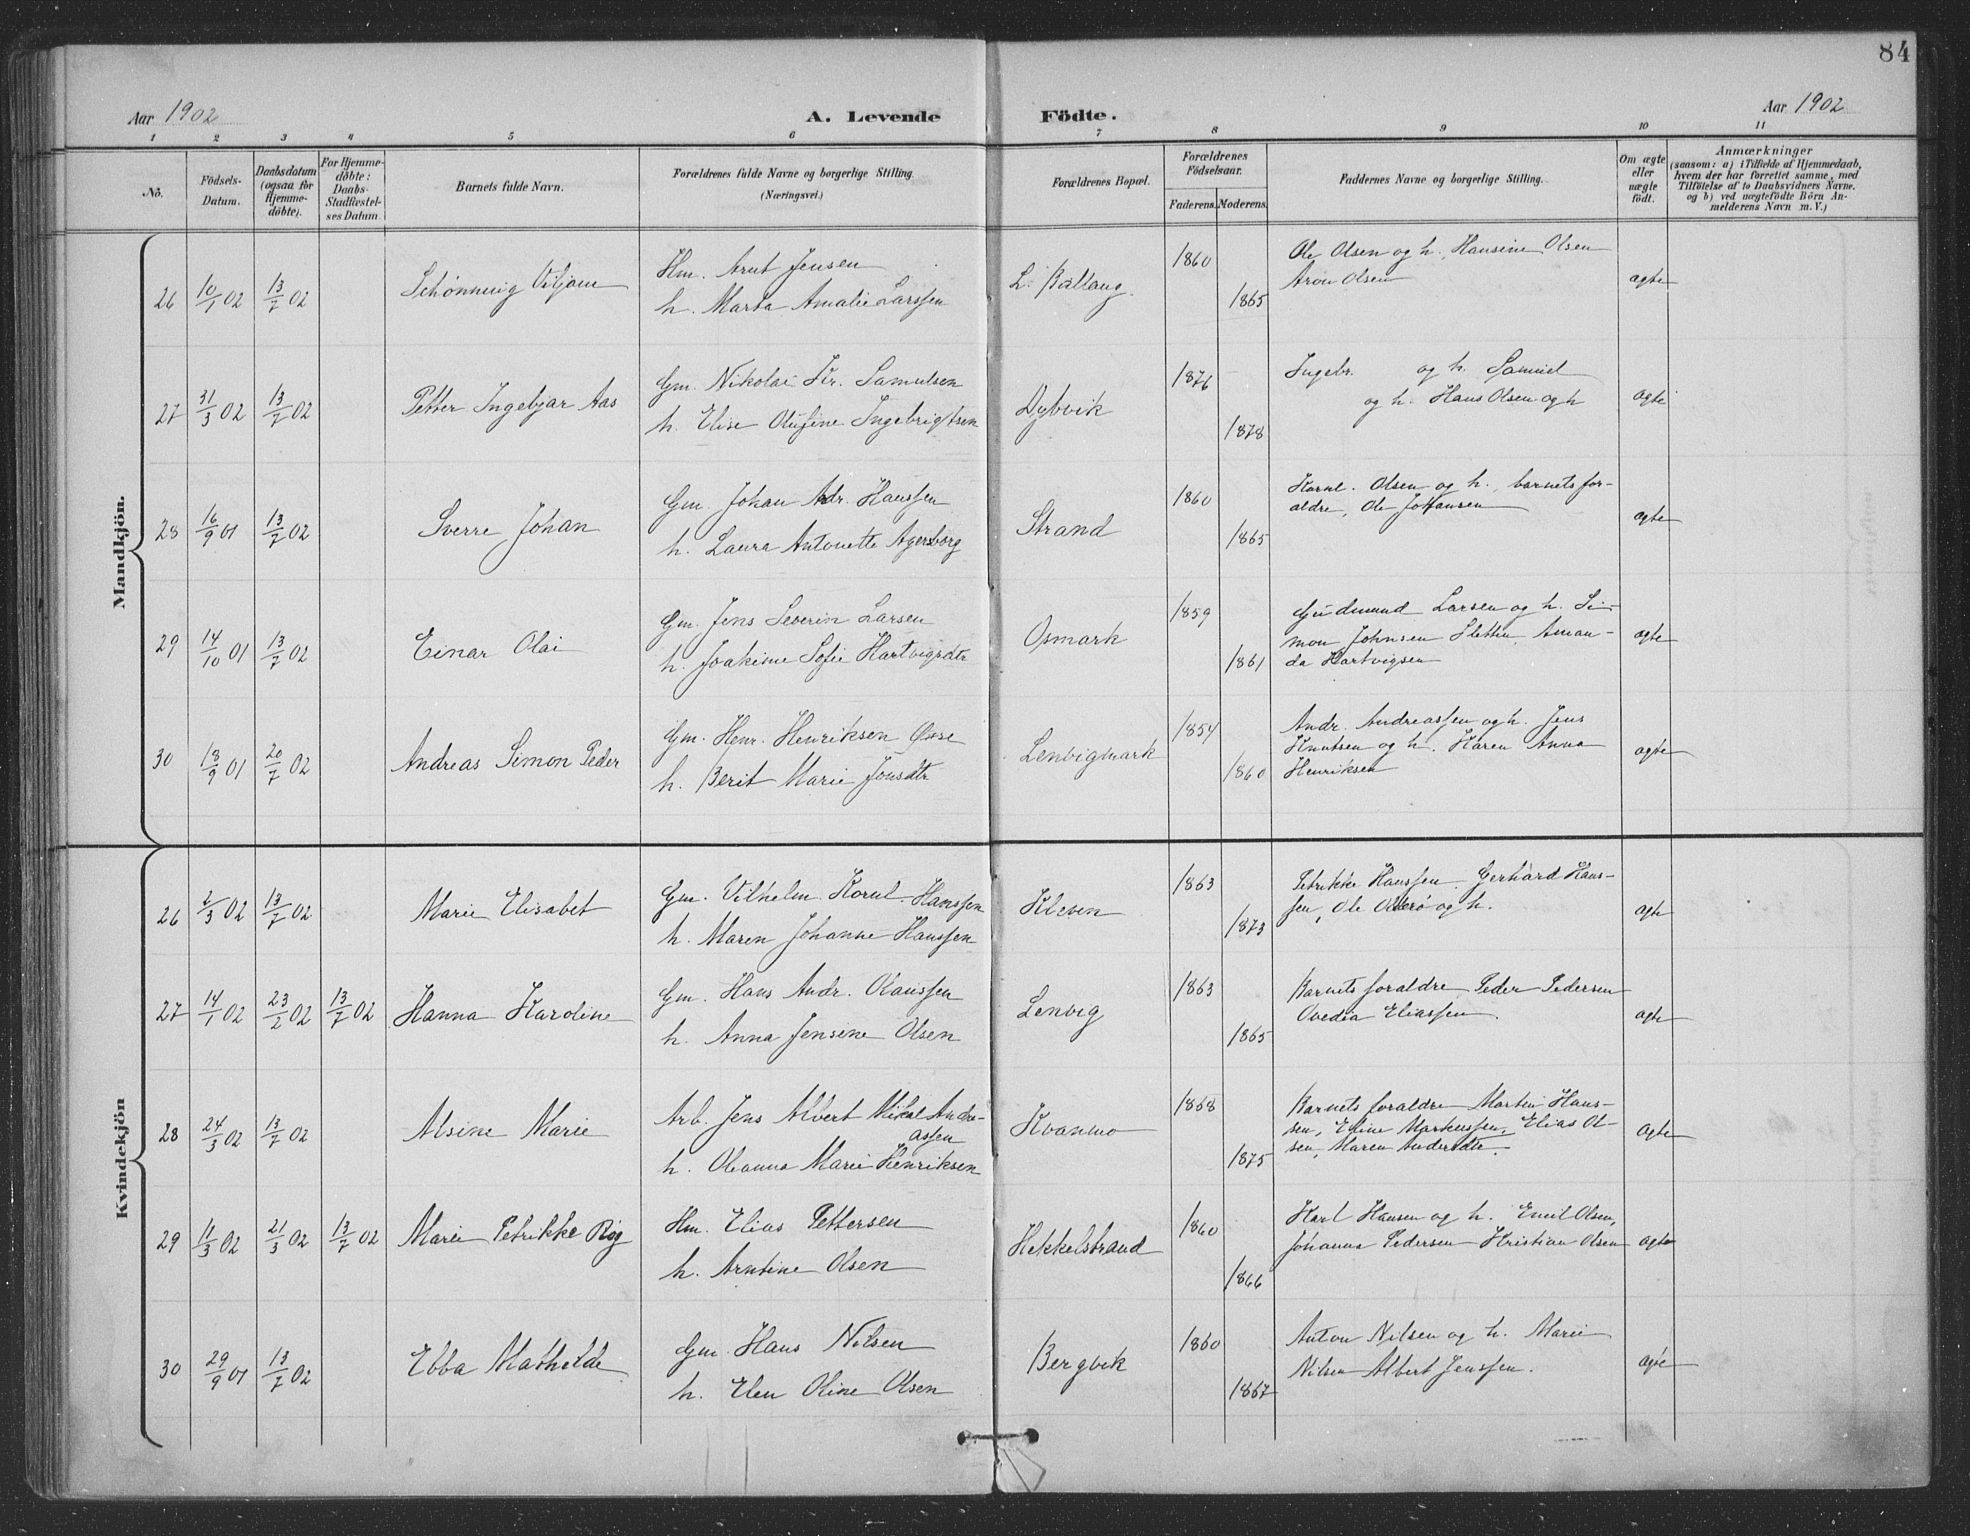 84
Aar 1902 A. Levende Födte. Aar 1902
1 2 3 4 5 6 7 8 9 10 11
No. Födsels-Datum. Daabsdatum (ogsaa for Hjemmedöbte). For Hjemmedöbte: Daabs-Stadfæstelses Datum. Barnets fulde Navn. Forældrenes fulde Navne og borgerlige Stilling. (Næringsvei.) Forældrenes Bopæl. Forældrenes Födselsaar. Faderens. Moderens. Faddernes Navne og borgerlige Stilling. Om ægte eller uægte födt. Anmærkninger (saasom: a) i Tilfælde af Hjemmedaab, hvem der har forrettet samme, med Tilföielse af to Daabsvidners Navne. og b) ved uægtefödte Börn Anmelderens Navn m. V.)
Mandkjön.
26 10/1 02 13/7 02 Schønning Viljam Hm. Arnt Jensen L. Ballang. 1860 Ole Olsen og h. Hansine Olsen ægte
h. Marta Amalie Larssen 1865 Aron Olsen
27 31/3 02 13/7 02 Petter Ingebjar Aas Gm. Nikolai Kr. Samulsen Dybvik 1876 Ingebr. og h. Samuel ægte
h. Elise Olufine Ingebrigtsen 1878 og h. Hans Olsen og h
28 16/9 01 13/7 02 Sverre Johan Gm. Johan Adr. Hanssen Strand 1860 Kornl. Olsen og h., barnets for-
h. Laura Antonette Agersborg 1865 ældre, Ole Johansen ægte
29 14/10 01 13/7 02 Einar Olai Gm. Jens Severin Larsen Osmark 1859 Gudmund Larsen og h. Si-
h. Joakime Sofie Hartvigsdtr 1861 mon Johnsen Sletten Aman-
da Hartvigsen ægte
30 18/9 01 20/7 02 Andreas Simon Peder Gm. Henr. Henriksen Lenvigmark 1854 Andr. Andreassen og h. Jens
h. Berit Marie Jonsdtr 1860 Knutsen og h. Karen Anna
Henriksen ægte
Kvindekjön
26 2/3 02 13/7 02 Marie Elisabet Gm. Vilhelm Kornl. Hanssen Kleven 1863 Petrikke Hanssen Gerhard Hans-
h. Maren Johanne Hanssen 1873 sen, Ole og h. ægte
27 14/1 02 23/2 02 13/7 02 Hanna Karoline Gm. Hans Andr. Lenvig 1863 Barnets forældre Peder Pedersen
h. Anna Jensine Olsen 1865 Ovedia Eliassen. ægte
28 24/3 02 13/7 02 Alsine Marie Arb. Jens Albert Mikal Andre-
assen Kvanmo 1868 Barnets forældre Martin Hans-
h. Oleanna Marie Henriksen 1875 sen, Eline Markussen, Elias Ol-
sen, Maren Andersdtr. ægte
29 11/3 02 21/3 02 13/7 02 Marie Petrikke Røg Hm. Elias Pettersen Hekkelstrand 1860 Karl Hansen og h. Emil Olsen,
h. Arntine Olsen 1866 Johanna Pedersen Kristian Olsen ægte
30 29/9 01 13/7 02 Ebba Mathilde Gm. Hans Nilsen Bergvik 1860 Anton Nilsen og h. Marie
h. Elen Oline Olsen 1867 Nilsen Albert Jenssen. ægte